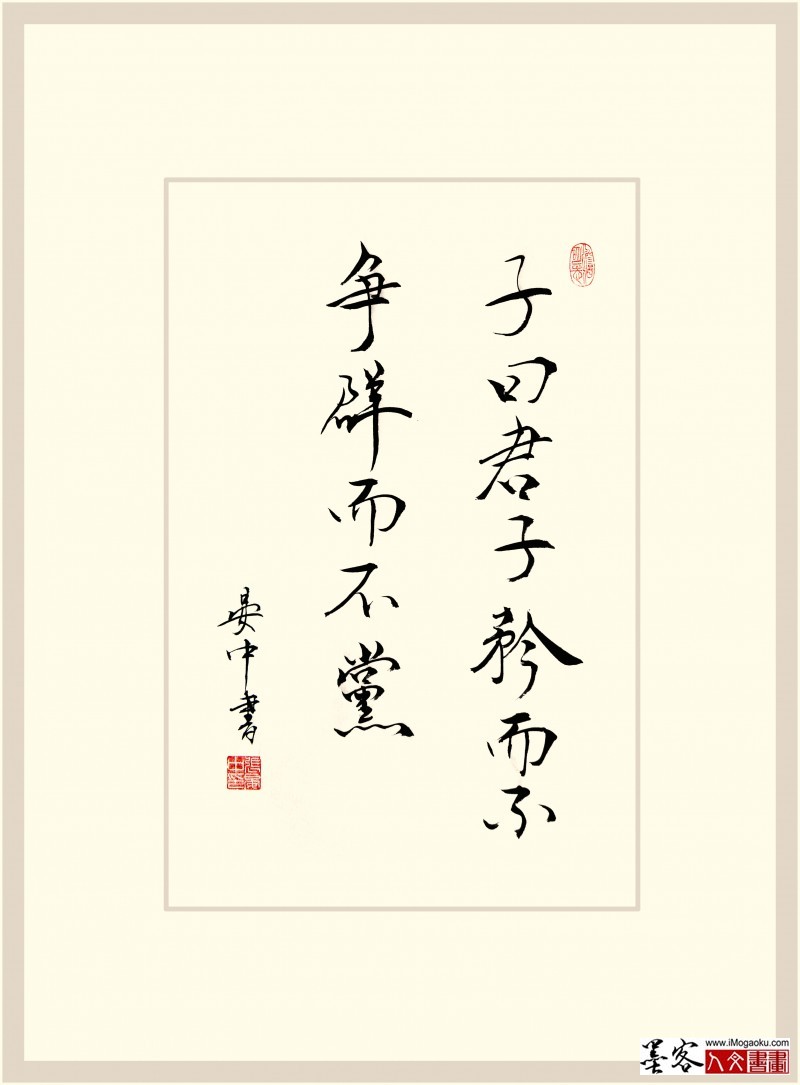 子曰君子矜而不
争群而不黨
晏中書
墨客
www.iMogaoku.com
人文書畫